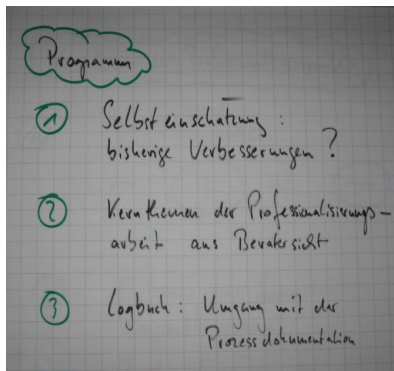 Programm
1 Selbsteinschätzung:
bisherige Verbesserungen?
2 Kernthemen der Professionalisierungs-
arbeit aus Beratersicht
3 Logbuch: Umgang mit der
Prozessdokumentation